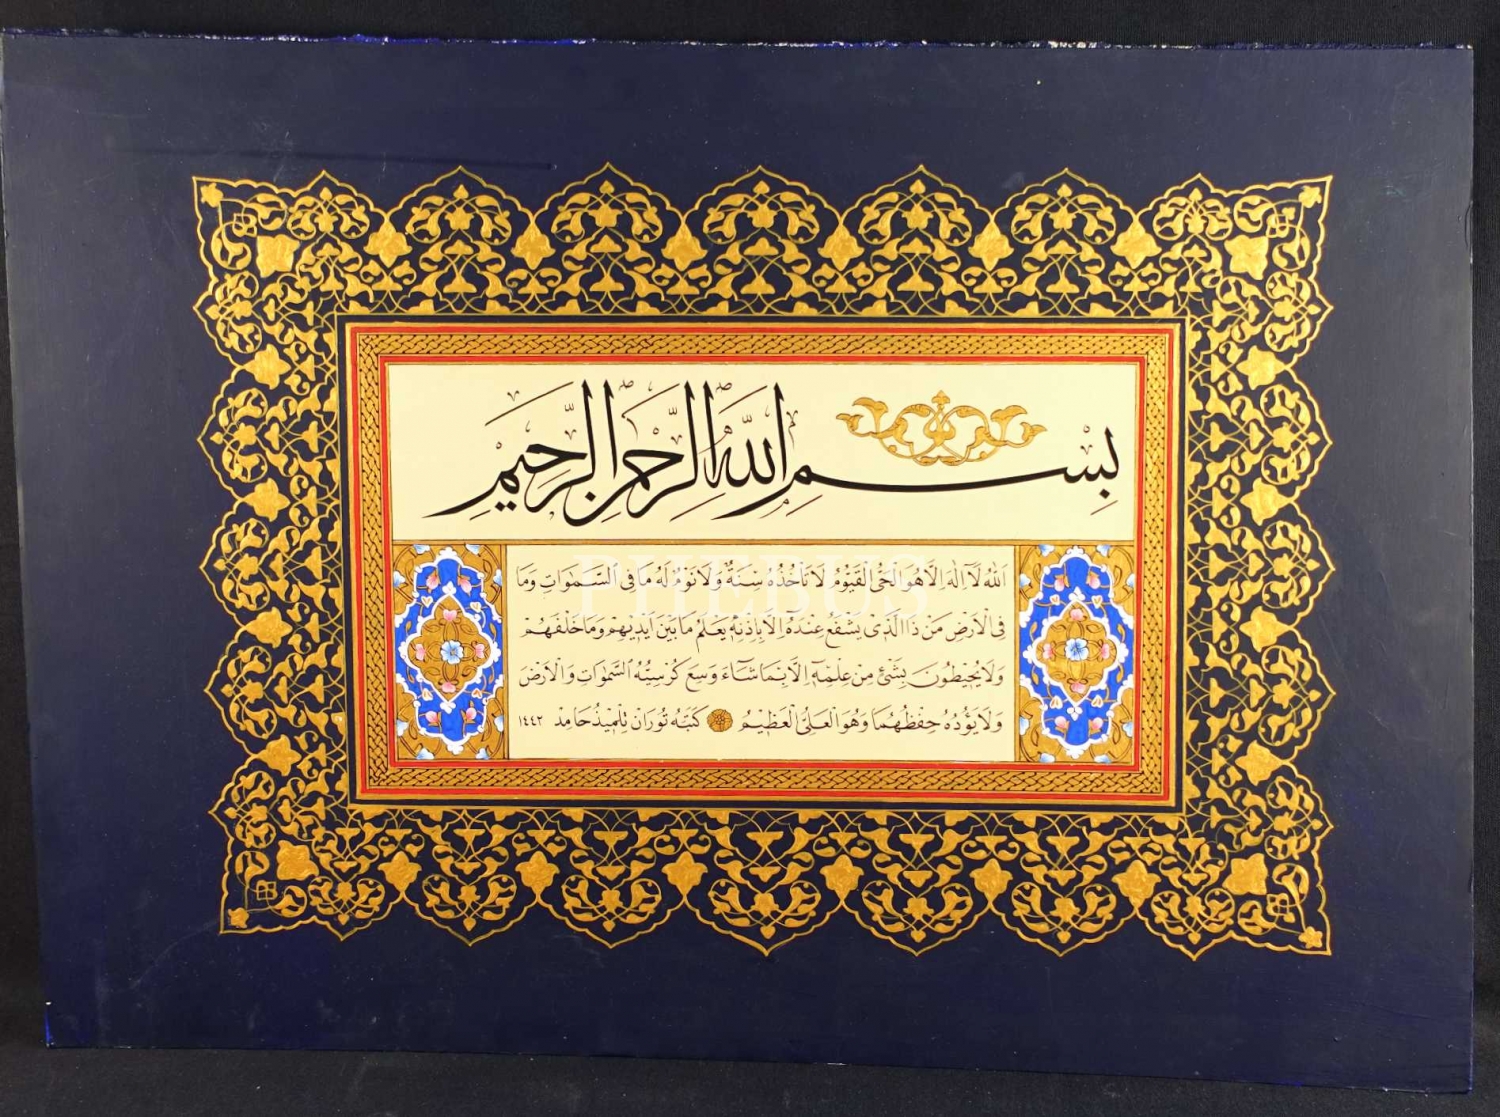 بِسْمِ اللّٰهِ الرَّحْمٰنِ الرَّحِيمِ
اَللّٰهُ لَآ اِلٰهَ اِلَّا هُوَ الْحَىُّ الْقَيُّومُ لَا تَأْخُذُهُ سِنَةٌ وَلَا نَوْمٌ لَهُ مَا فِى السَّمٰوَاتِ وَمَا
فِى الْاَرْضِ مَنْ ذَا الَّذِى يَشْفَعُ عِنْدَهُ اِلَّا بِاِذْنِهِ يَعْلَمُ مَا بَيْنَ اَيْدِيهِمْ وَمَا خَلْفَهُمْ
وَلَا يُحِيطُونَ بِشَىْءٍ مِنْ عِلْمِهِ اِلَّا بِمَا شَاءَ وَسِعَ كُرْسِيُّهُ السَّمٰوَاتِ وَالْاَرْضَ
وَلَا يَؤُدُهُ حِفْظُهُمَا وَهُوَ الْعَلِىُّ الْعَظِيمُ كَتَبَهُ تُورَان تِلْمِيذُ حَامِدْ ١٤٤٢
PHEBUS